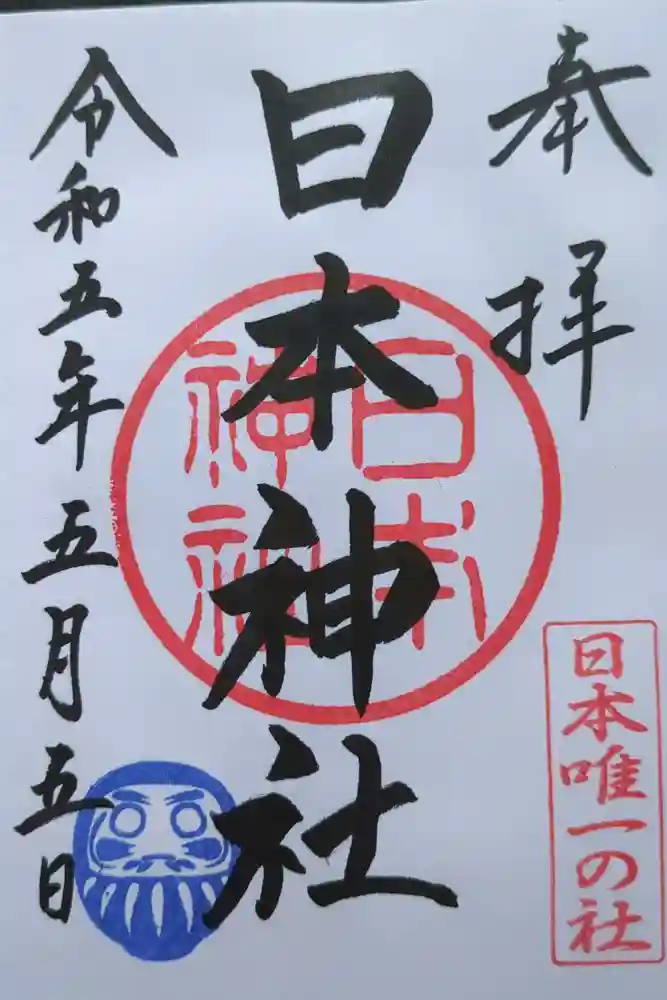 奉拝
日本唯一の社
日本神社
日本神社
令和五年五月五日